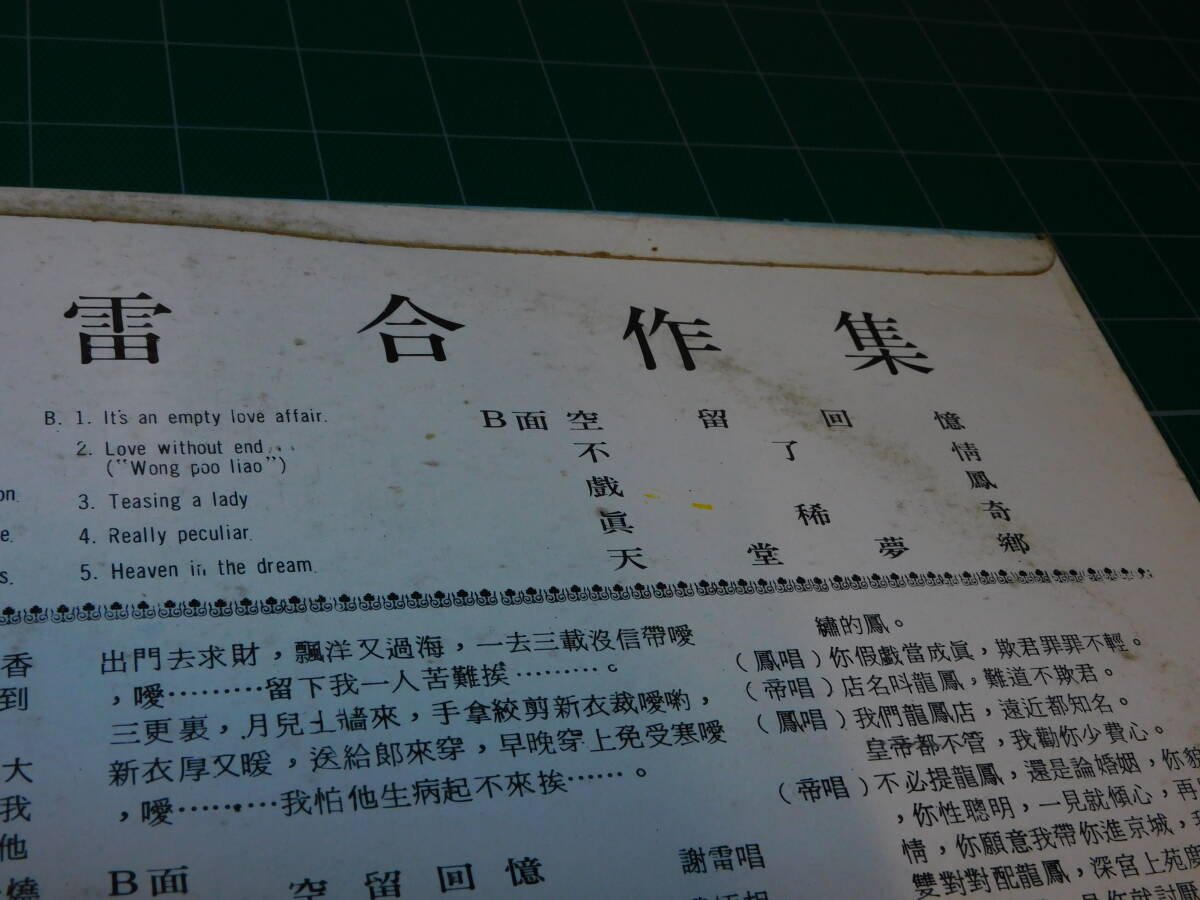 雷合作集
B. 1. It's an empty love affair.
2. Love without end...
("Wong poo liao")
3. Teasing a lady
4. Really peculiar
5. Heaven in the dream.
on
e.
s.
B面 空留回憶
不了情
戲鳳
眞稀奇
天堂夢鄉
香
到
大
我
他
燒
出門去求財，飄洋又過海，一去三載沒信帶噯
，噯………留下我一人苦難挨………。
三更裏，月兒上牆來，手拿絞剪新衣裁噯喲，
新衣厚又暖，送給郎來穿，早晚穿上免受寒噯
，噯………我怕他生病起不來挨……。
B面 空留回憶 謝雷唱
繡的鳳。
（鳳唱）你假戲當成眞，欺君罪罪不輕。
（帝唱）店名叫龍鳳，難道不欺君。
（鳳唱）我們龍鳳店，遠近都知名。
皇帝都不管，我勸你少費心。
（帝唱）不必提龍鳳，還是論婚姻，你貌
，你性聰明，一見就傾心，再
情，你願意我帶你進京城，
雙對對配龍鳳，深宮上苑慶